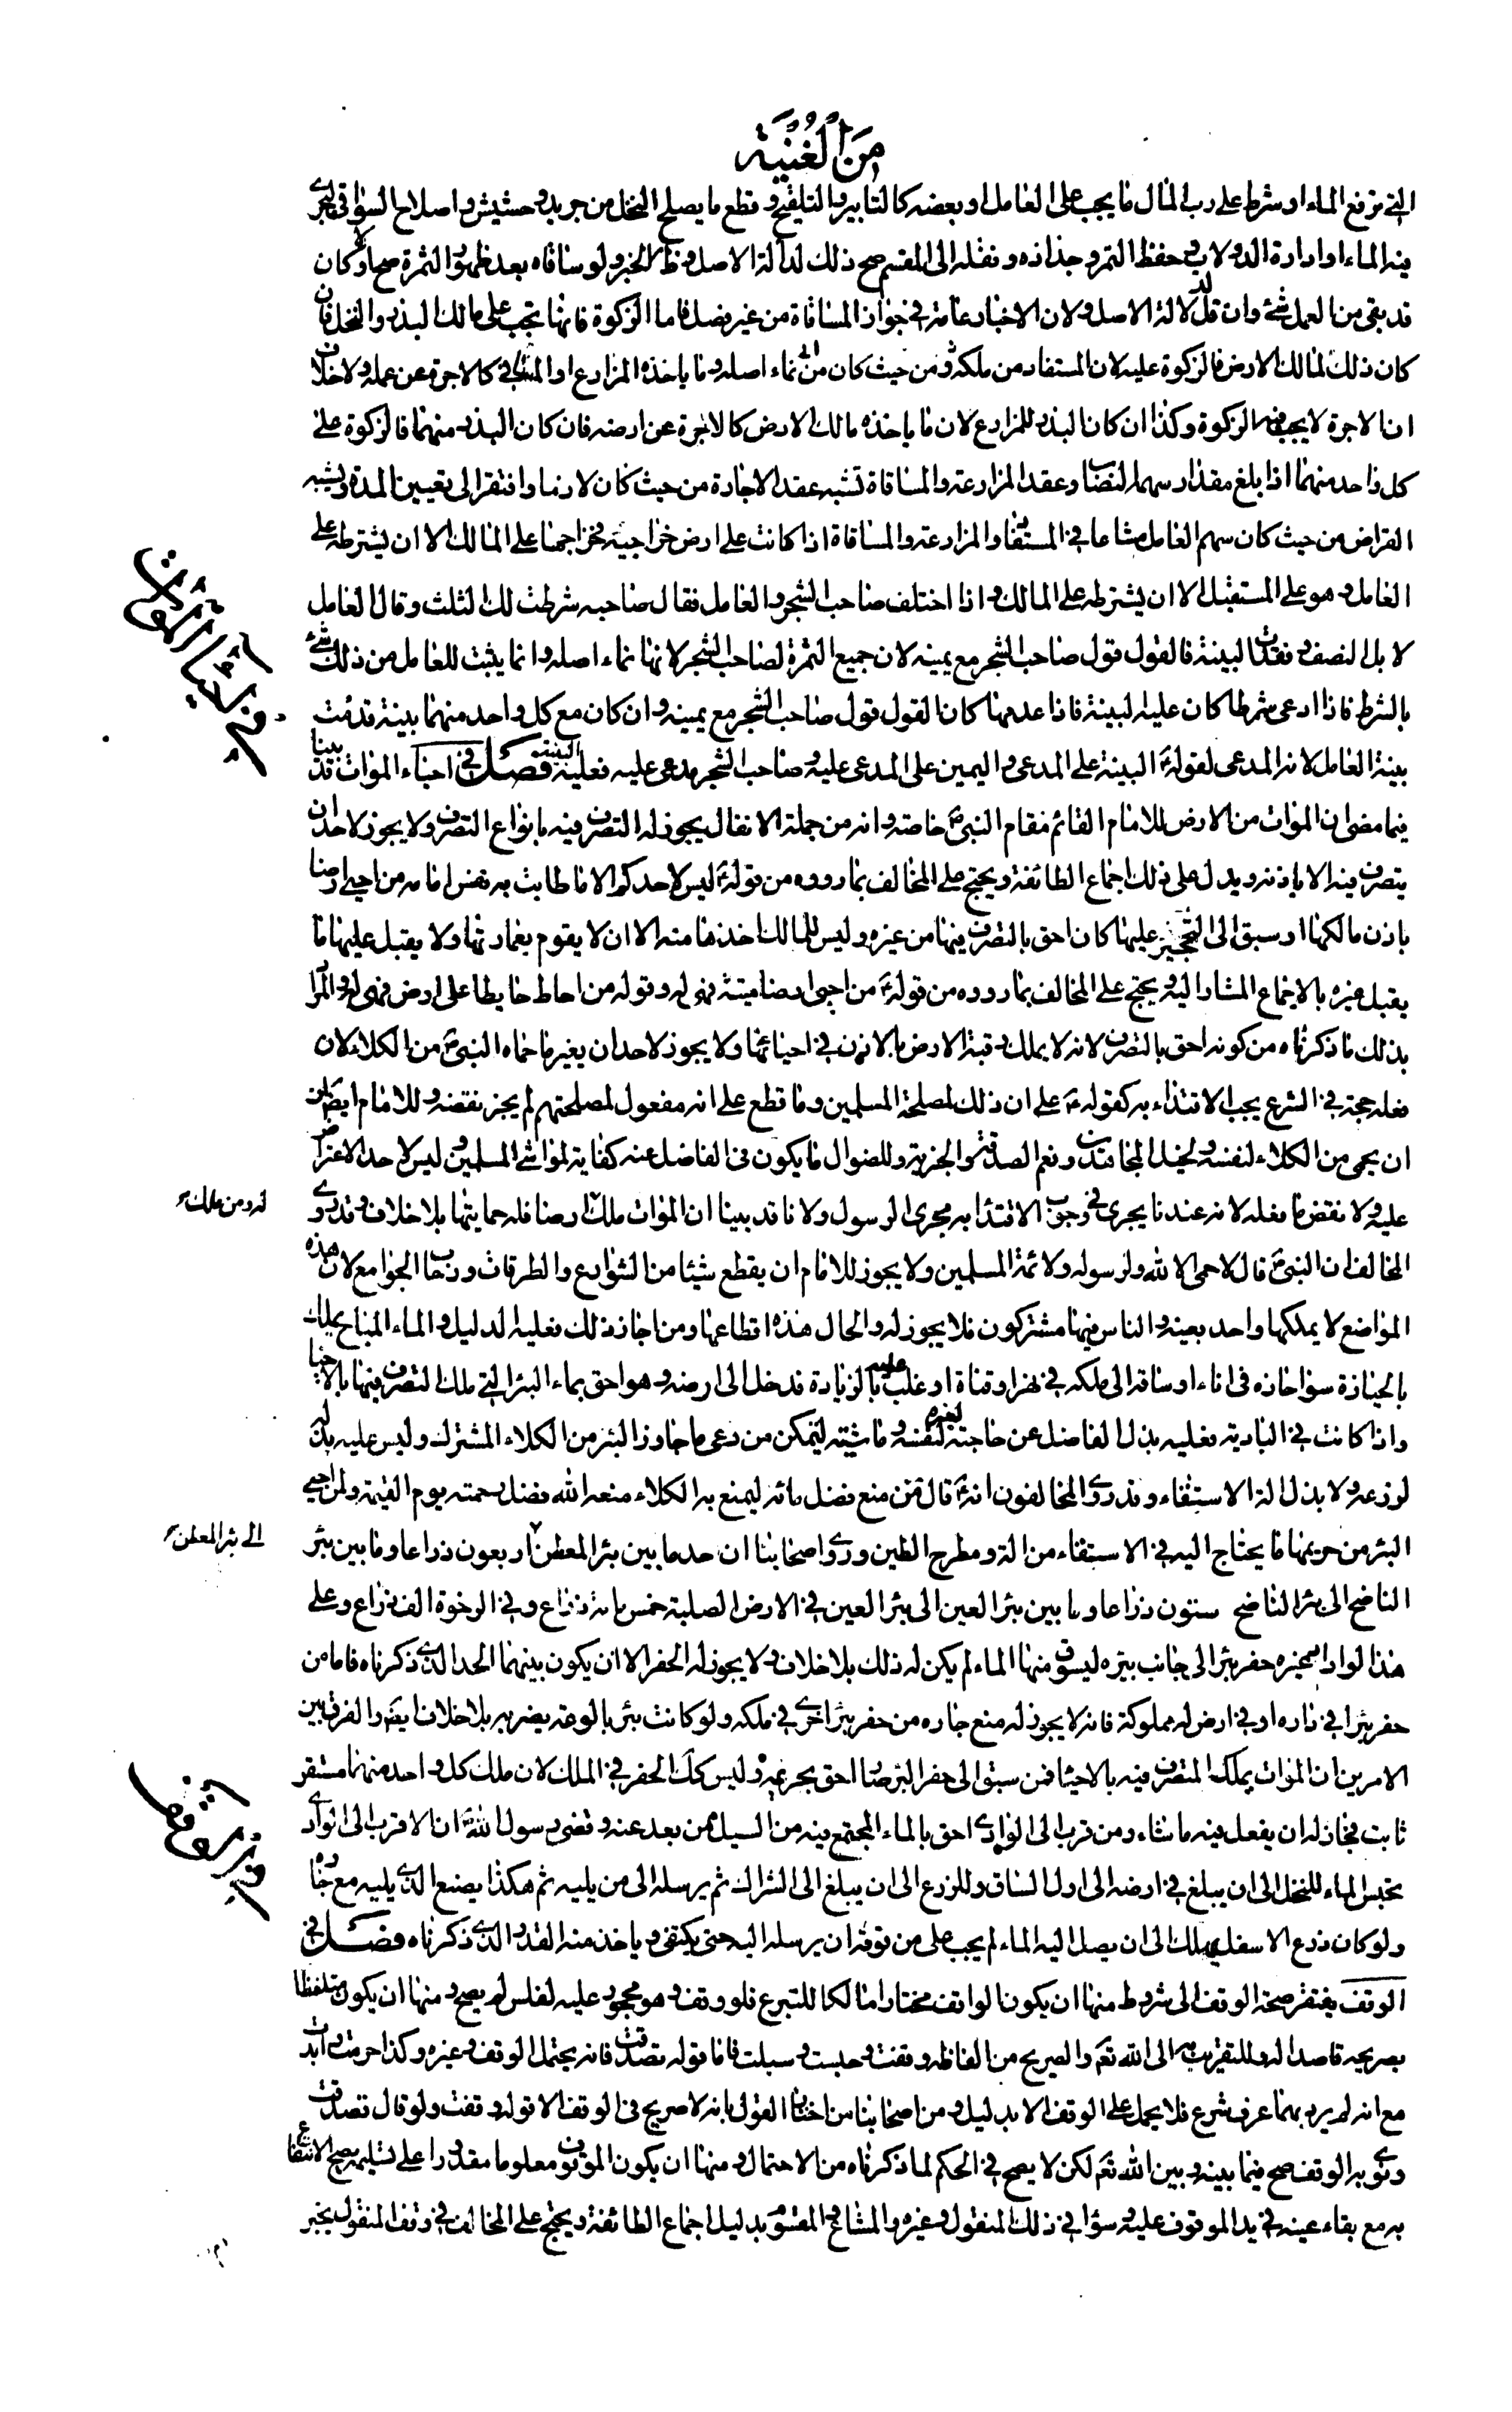 من الغنية
التي ترفع الماء او شرط على رب المال ما يجب على العامل او بعضه كالتابير والتلقيح وقطع ما يصلح النخل من جريد وحشيش واصلاح السواقي ليجري
فيه الماء او ادارة الدولاب وحفظ الثمر وجذاذه ونقله الى المقسم صح ذلك لدلالة الاصل وظ الخبر ولو ساقاه بعد ظهور الثمرة صح اذا كان
قد بقي من العمل شئ وان قل لدلالة الاصل ولان الاخبار عامة في جواز المساقاة من غير فصل فاما الزكوة فانها تجب على مالك البذر والنخل فان
كان ذلك لمالك الارض فالزكوة عليه لان المستفاد من ملكه من حيث كان نماء اصله وما ياخذه المزارع او المساقي كالاجرة عن عمله ولا خلاف
ان الاجرة لا يجب فيها الزكوة وكذا ان كان البذر للمزارع لان ما ياخذه مالك الارض كالاجرة عن ارضه فان كان البذر منهما فالزكوة على
كل واحد منهما اذا بلغ مقدار سهمه النصاب وعقد المزارعة والمساقاة تشبه عقد الاجارة من حيث كان لازما وافتقر الى تعيين المدة ويشبه
القراض من حيث كان سهم العامل مشاعا في المستفاد والمزارعة والمساقاة اذا كانت على ارض خراجية فخراجها على المالك الا ان يشترطه على
العامل وهو على المستقبل الا ان يشترطه على المالك واذا اختلف صاحب الشجر والعامل فقال صاحبه شرطت لك الثلث وقال العامل
لا بل النصف وفقدت البينة فالقول قول صاحب الشجر مع يمينه لان جميع الثمرة لصاحب الشجر لانها نماء اصله وانما يثبت للعامل من ذلك شئ
بالشرط فاذا ادعى شرطا كان عليه البينة فاذا عدمها كان القول قول صاحب الشجر مع يمينه وان كان مع كل واحد منهما بينة قدمت
بينة العامل لانه المدعى لقوله ع البينة على المدعي واليمين على المدعى عليه وصاحب الشجر مدعى عليه فعليه اليمين فصل في احياء الموات قد بينا
فيما مضى ان الموات من الارض للامام القائم مقام النبي ص خاصة وانه من جملة الانفال يجوز له التصرف فيه بانواع التصرف ولا يجوز لاحد ان
يتصرف فيه الا باذنه ويدل على ذلك اجماع الطائفة ويحتج على المخالف بما رووه من قوله ع ليس لاحدكم الا ما طابت به نفس امامه من احيى ارضا
باذن مالكها او سبق الى التحجير عليها كان احق بالتصرف فيها من غيره وليس للمالك اخذها منه الا ان لا يقوم بعمارتها ولا يقبل عليها ما
يقبل غيره بالاجماع المشار اليه ويحتج على المخالف بما رووه من قوله ع من احيى ارضا ميتة فهي له وقوله من احاط حايطا على ارض فهي له والمراد
بذلك ما ذكرناه من كونه احق بالتصرف لانه لا يملك رقبة الارض بالاذن في احيائها ولا يجوز لاحد ان يغير ما حماه النبي ص من الكلاء لان
فعله حجة في الشرع يجب الاقتداء به كقوله ع على ان ذلك لمصلحة المسلمين وما قطع على انه مفعول لمصلحتهم لم يجز نقضه وللامام ايضا
ان يحمي من الكلاء لنفسه ولخيل المجاهدين ونعم الصدقة والجزية وللضوال ما يكون في الفاضل عنه كفاية لمواشي المسلمين وليس لاحد الاعتراض
عليه ولا نقض ما فعله لانه عندنا يجري في وجوب الاقتداء به مجرى الرسول ولانا قد بينا ان الموات ملك ارضا فله حمايتها بلا خلاف وقد روى
له ومن ملك
المخالف ان النبي ص قال لا حمى الا لله ولرسوله ولائمة المسلمين ولا يجوز للامام ان يقطع شيئا من الشوارع والطرقات ورحاب الجوامع لان هذه
المواضع لا يملكها واحد بعينه والناس فيها مشتركون فلا يجوز له والحال هذه اقطاعها ومن اجاز ذلك فعليه الدليل والماء المباح يملك
بالحيازة سواء حازه في اناء او ساقه الى ملكه في نهر او قناة او غلب عليه بالزيادة فدخل الى ارضه وهو احق بماء البئر التي ملك التصرف فيها بالاحيا
واذا كانت في البادية فعليه بذل الفاضل عن حاجته لنفسه وماشيته لغيره ليتمكن من رعي ما جاوز البئر من الكلاء المشترك وليس عليه بذله
لزرعه ولا بذل الة الاستقاء وقد روى المخالفون انه ع قال من منع فضل مائه ليمنع به الكلاء منعه الله فضل رحمته يوم القيمة ولمن احيى
البئر من حريمها ما يحتاج اليه في الاستقاء من الة ومطرح الطين وروى اصحابنا ان حد ما بين بئر المعطن اربعون ذراعا وما بين بئر
الى بئر المعطن
الناضح الى بئر الناضح ستون ذراعا وما بين بئر العين الى بئر العين في الارض الصلبة خمس مائة ذراع وفي الرخوة الف ذراع وعلى
هذا لو اراد غيره حفر بئر الى جانب بيره ليسوق منها الماء لم يكن له ذلك بلا خلاف ولا يجوز له الحفر الا ان يكون بينهما الحد الذي ذكرناه فاما من
حفر بئرا في داره او في ارض له مملوكة فانه لا يجوز له منع جاره من حفر بئر اخرى في ملكه ولو كانت بئر بالوعة يضر به بلا خلاف ايضا والفرق بين
الامرين ان الموات يملك المتصرف فيه بالاحياء فمن سبق الى حفر البئر صار احق بحريمه وليس كذلك الحفر في الملك لان ملك كل واحد منهما مستقر
ثابت فجاز له ان يفعل فيه ما شاء ومن قرب الى الوادي احق بالماء المجتمع فيه من السيل ممن بعد عنه وقضى رسول الله ص ان الاقرب الى الوادي
يحبس الماء للنخل الى ان يبلغ في ارضه الى اول الساق وللزرع الى ان يبلغ الى الشراك ثم يرسله الى من يليه ثم هكذا يصنع الذي يليه مع جاره
ولو كان زرع الاسفل يهلك الى ان يصل اليه الماء لم يجب على من فوقه ان يرسله اليه حتى يكتفي وياخذ منه القدر الذي ذكرناه فصل في
الوقف يفتقر صحة الوقف الى شروط منها ان يكون الواقف مختارا مالكا للتبرع فلو وقف وهو محجور عليه لفلس لم يصح ومنها ان يكون متلفظا
بصريحه قاصدا له وللتقرب به الى الله تعم والصريح من الفاظه وقفت وحبست وسبلت فاما قوله تصدقت فانه يحتمل الوقف وغيره وكذا حرمت وابدت
مع انه لم يرد بهما عرف شرع فلا يحمل على الوقف الا بدليل ومن اصحابنا من اختار القول بانه لا صريح في الوقف الا قوله وقفت ولو قال تصدقت
ونوى به الوقف صح فيما بينه وبين الله تعم لكن لا يصح في الحكم لما ذكرناه من الاحتمال ومنها ان يكون الموقوف معلوما مقدورا على تسليمه يصح الانتفاع
به مع بقاء عينه في يد الموقوف عليه وسواء في ذلك المنقول وغيره والمشاع والمقسوم بدليل اجماع الطائفة ويحتج على المخالف في وقف المنقول بخبر
في احياء الموات
في الوقف